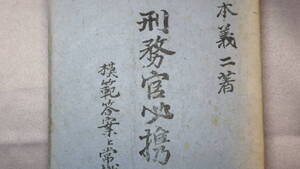 本義二著
刑務官必携
模範答案と常識